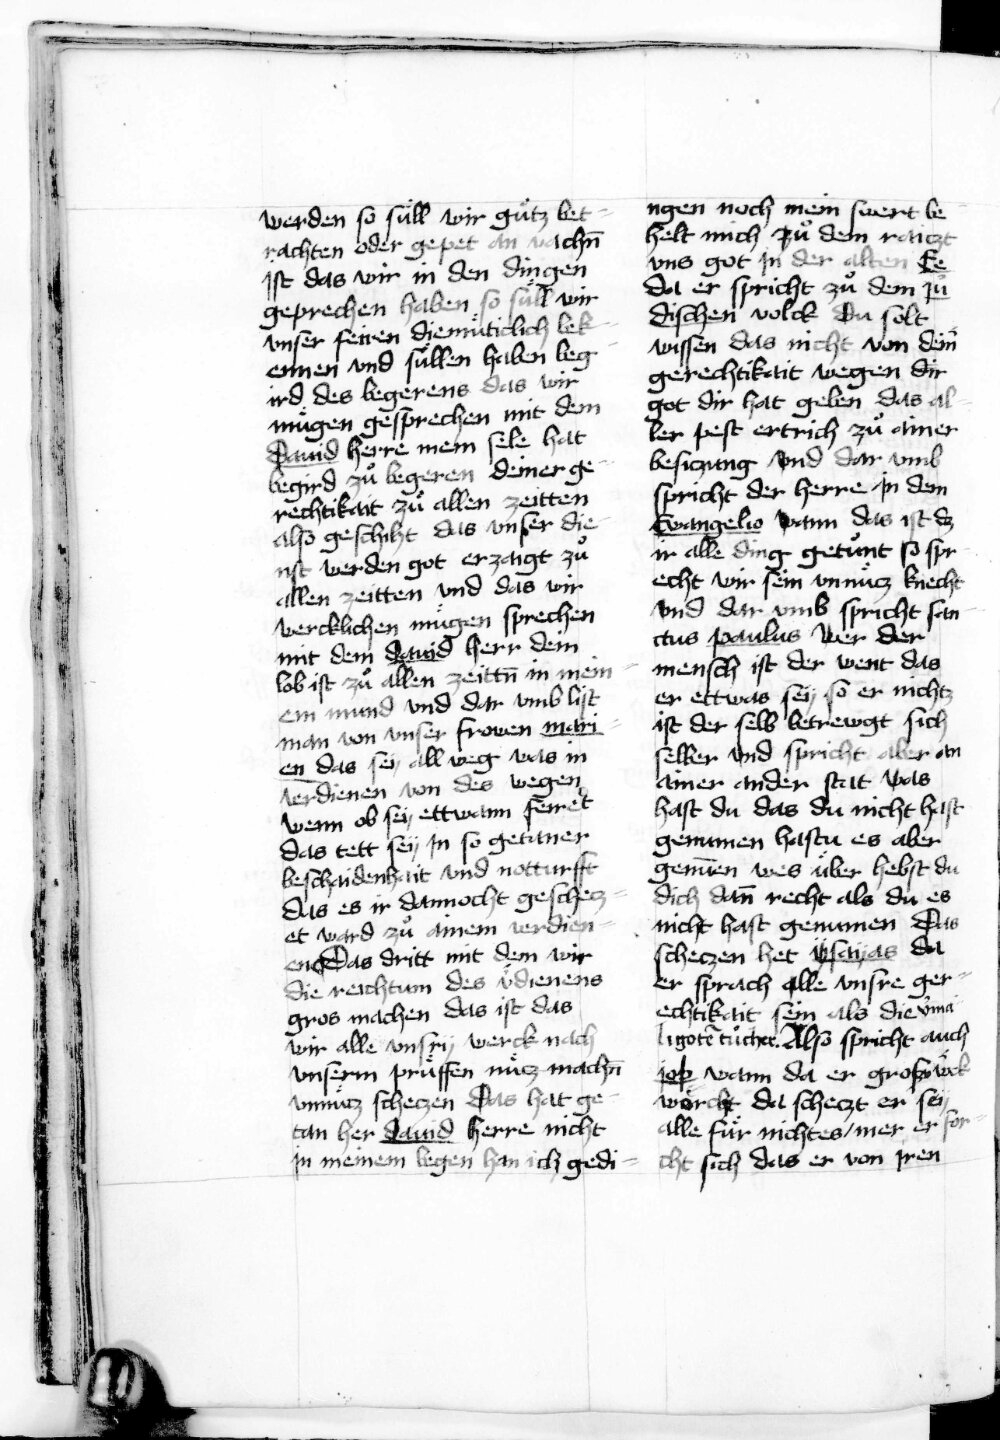 werden so süll wir gůtz bet-
rachten oder gepet an vachn̄
ist das wir in den dingen
geprechen haben so süll wir
vnser feiren diemüticlich bek-
ennen vnd süllen haben beg-
ird des begerens das wir
mügen gesprechen mit dem
Dauid herre mein sele hat
begird zů begeren deiner ge-
rechtikait zů allen zeitten
also geschiht das vnser die-
nst werden got erzaigt zů
allen zeitten vnd das wir
wercklichen mügen sprechen
mit dem dauid herr dein
lob ist zů allen zeittn̄ in mein-
em mund vnd dar vmb list
man von vnser frowen mari-
en das seÿ all weg was in
verdienen von des wegen
wenn ob seÿ ettwann feiret
das tett seÿ in so getaner
beschaidenhait vnd notturfft
das es ir dannocht geschecz-
et ward zů ainem verdien-
en Das dritt mit dem wir
die reichtum des v̓dienens
gros machen das ist das
wir alle vnsrÿ werck nach
vnserm prüffen nücz machn̄
vnnücz scheczen Das hat ge-
tan her dauid herre nicht
in meinem begen han ich gedi-
ngen noch mein swert be-
helt mich zů dem raiczt
vns got in der alten Ee
da er spricht zů dem jü
dischen volck Du solt
wissen das nicht von dein̄
gerechtikait wegen dir
got dir hat geben das al-
ler pest ertrich zů ainer
besiczung vnd dar vmb
spricht der herre in dem
Ewangelio wann das ist dz
ir alle ding getůnt so spr-
echt wir sein vnnücz knecht
vnd dar vmb spricht san-
ctus paulus wer der
mensch ist der went das
er ettwas seÿ so er nichtz
ist der selb betrewgt sich
selber vnd spricht aber an
ainer ander stat was
hast du das du nicht hast
genumen hastu es aber
genūen wes über hebst du
dich dan̄ recht als du es
nicht hast genumen Das
scheczen het ÿsaÿas da
er sprach alle vnsre ger-
echtikait sein als die v̓mai
ligotē tůcher. Also spricht auch
job wann da er groszẅ wek
wörcht da scheczt er seÿ
alle für nichtes/mer er for-
cht sich das er von jren